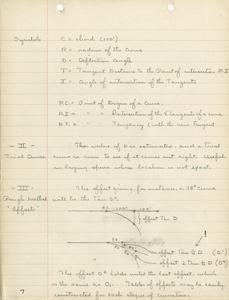 Symbols C = chord (100')
R = radius of the curve
D = Deflection Angle
T = Tangent Distance to the Point of intersection P.I.
I = Angle of intersection of the Tangents
P.C. = Point of Begin of a curve.
P.I. = " " Intersection of the Tangents of a curve
P.T. = " " Tangency (with the new tangent
- II - The value of D is estimated, and a trial
Trial Curves curve is run to see if it comes out right. Useful
in laying where location is not exact.
- III - The offset given, for instance, a 10° curve
Rough Method will be the Tan D°.
"Offsets"
offset Tan D
offset Tan ½ D (D')
offset 2 Tan ½ D (D°)
The offset D° holds until the last offset, which
is the same as O. Tables of offsets may be easily
constructed for each degree of curvature.
7